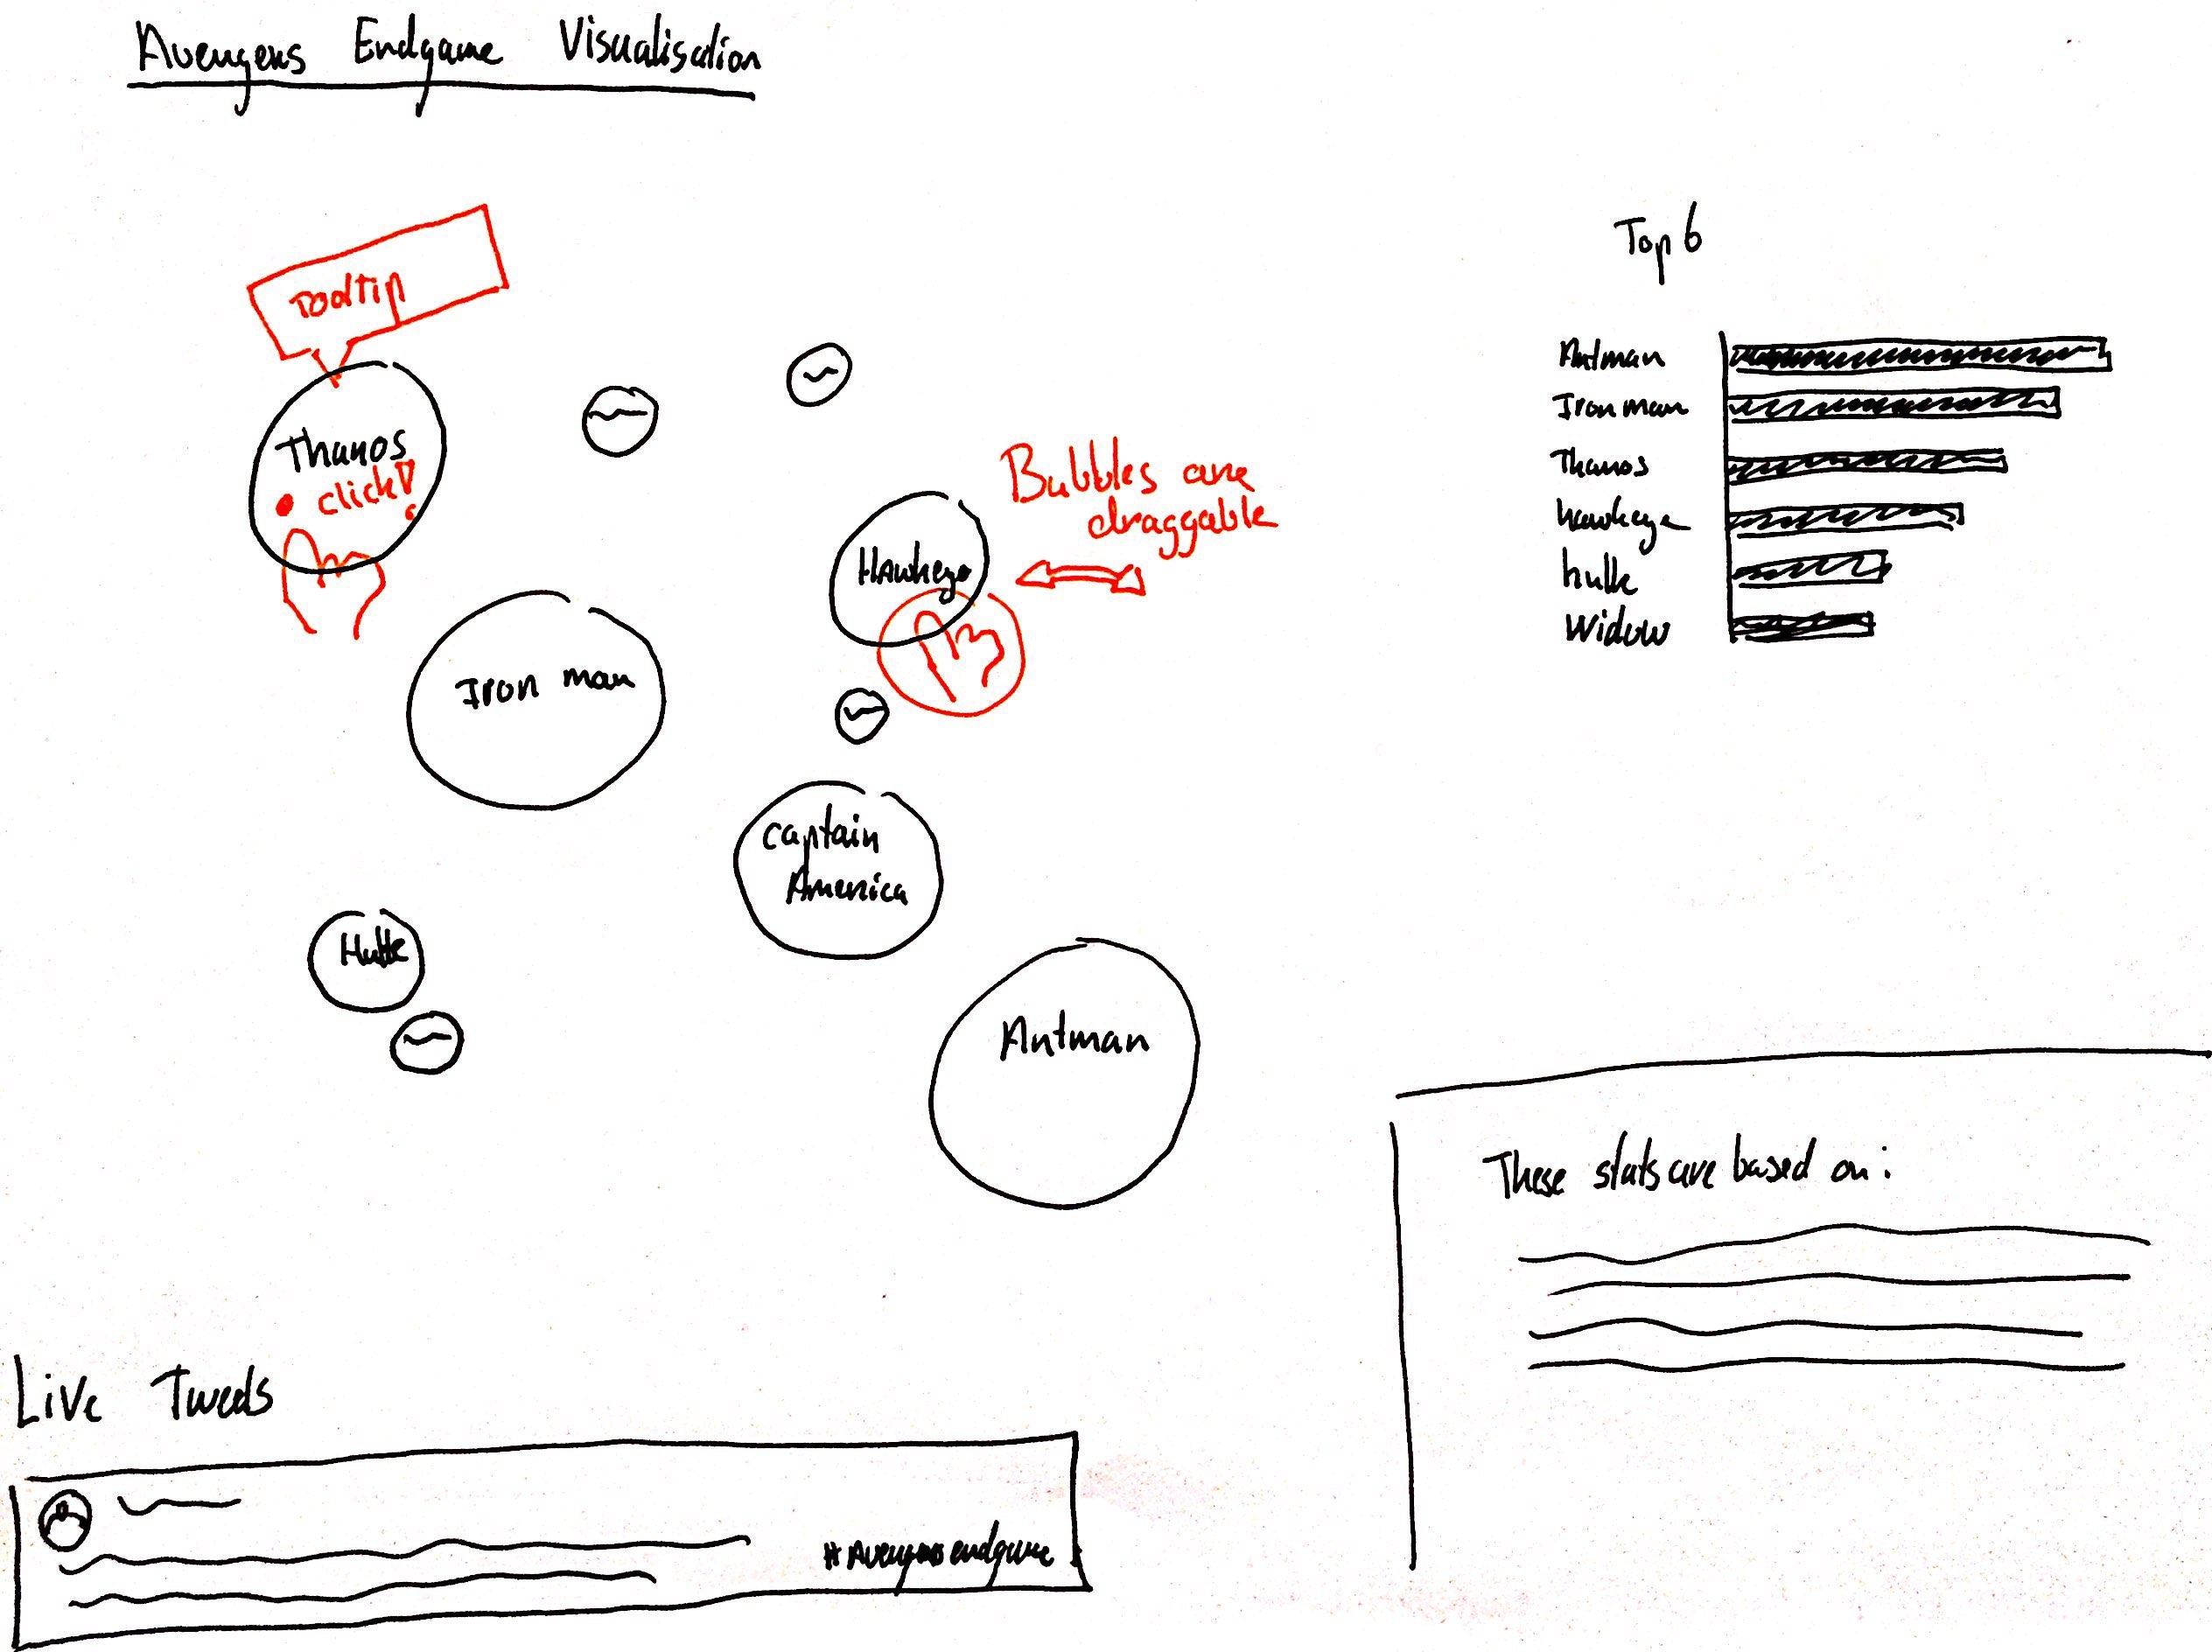 Avengers Endgame Visualisation
Tooltip
Thanos
click!
Bubbles are
draggable
Hawkeye
Iron man
Captain
America
Hulk
Antman
Top 6
Antman
Iron man
Thanos
hawkeye
hulk
Widow
These stats are based on:
Live Tweets
#Avengersendgame